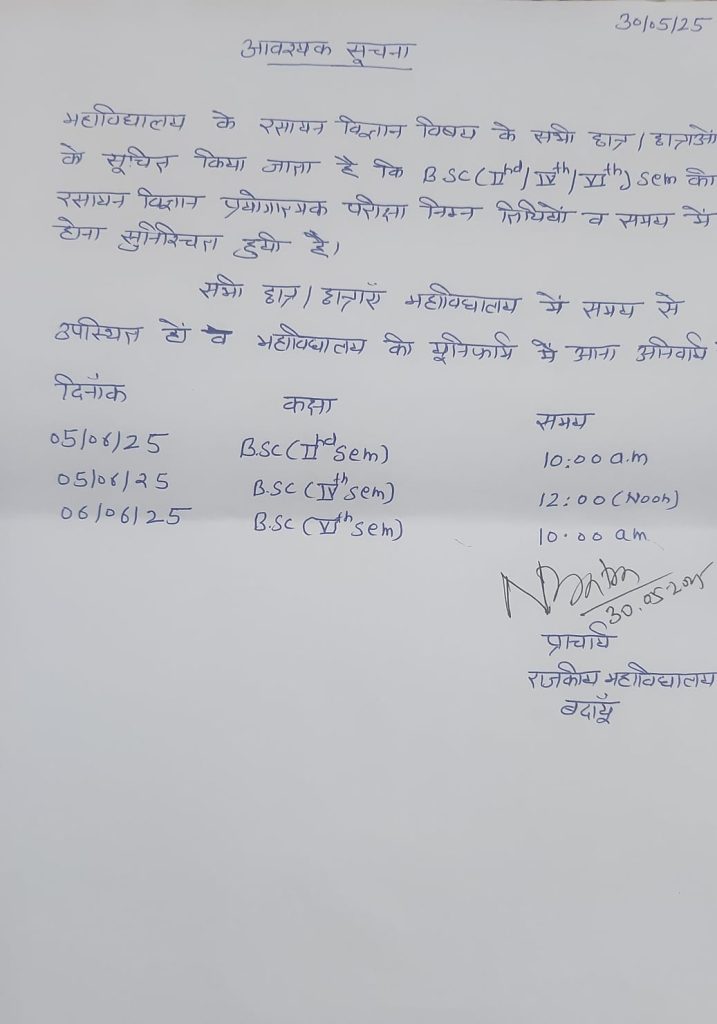 30/05/25
आवश्यक सूचना
महाविद्यालय के रसायन विज्ञान विषय के सभी छात्र/छात्राओं
के सूचित किया जाता है कि B.SC(IInd/IVth/VIth) Sem की
रसायन विज्ञान प्रयोगात्मक परीक्षा निम्न तिथियों व समय में
होना सुनिश्चित हुयी है।
सभी छात्र/छात्राएँ महाविद्यालय में समय से
उपस्थित हों व महाविद्यालय की यूनिफार्म में आना अनिवार्य
दिनाँक कक्षा समय
05/06/25 B.SC(IInd Sem) 10:00 a.m
05/06/25 B.SC (IVth Sem) 12:00 (Noon)
06/06/25 B.SC (VIth Sem) 10.00 am
30.05.2025
प्राचार्य
राजकीय महाविद्यालय
बदायूँ